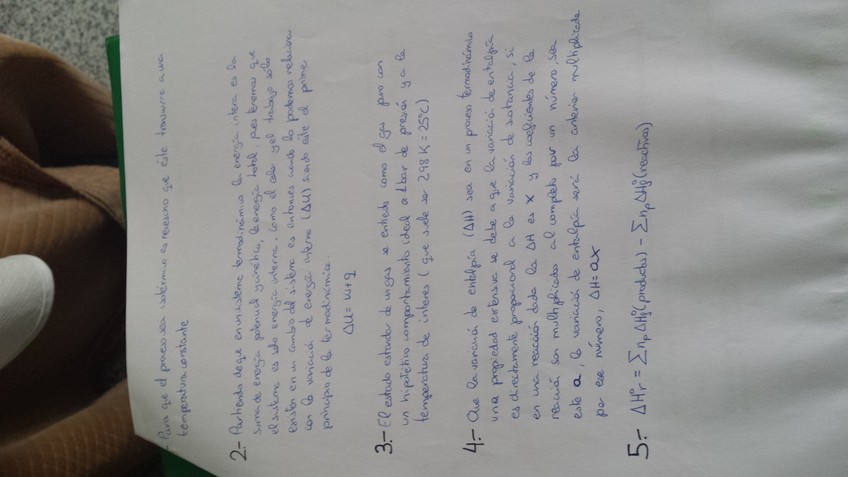 - Para que el proceso sea isotérmico es necesario que éste transcurra a una
temperatura constante
2.- Partiendo de que en un sistema termodinámico la energía interna es la
suma de energía potencial y cinética, la energía total, pues tenemos que
el sistema es solo energía interna. Como el calor y el trabajo sólo
existen en un cambio del sistema es entonces cuando lo podemos relacionar
con la variación de energía interna (ΔU) siendo éste el primer
principio de la termodinámica.
ΔU = w+q
3.- El estado estándar de un gas se entiende como el gas puro con
un hipotético comportamiento ideal a 1 bar de presión y a la
temperatura de interés (que suele ser 298 K = 25°C)
4.- Que la variación de entalpía (ΔH) sea en un proceso termodinámico
una propiedad extensiva se debe a que la variación de entalpía
es directamente proporcional a la variación de sustancia, si
en una reacción dada la ΔH es x y los coeficientes de la
reacción son multiplicados al completo por un número, sea
este a, la variación de entalpía será la anterior multiplicada
por ese número, ΔH = ax
5.- ΔH°r = Σ np ΔH°f (productos) - Σ np ΔH°f (reactivos)